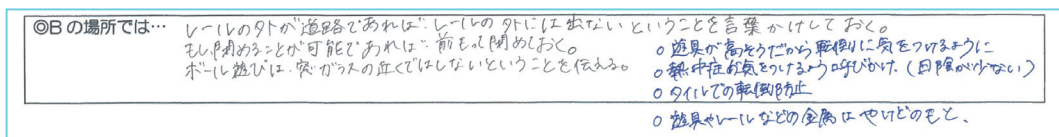 ◎Bの場所では… レールの外が道路であれば、レールの外には出ないということを言葉かけしておく。
もし閉めることが可能であれば、前もって閉めておく。
ボール遊びは、窓ガラスの近くではしないということを伝える。
○遊具が高そうだから転倒に気をつけるように
○熱中症お気をつけるよう呼びかけ。(日陰が少ない)
○タイルでの転倒防止
○遊具やレールなどの金属はやけどのもと、